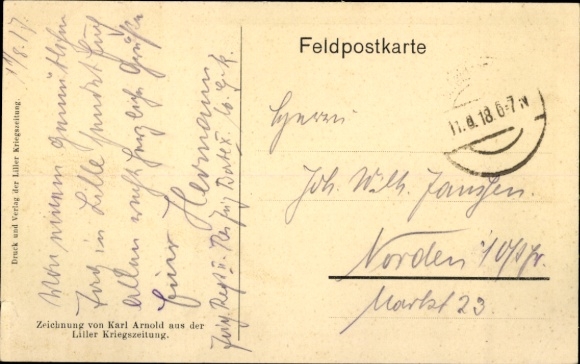 Feldpostkarte
11.8.18.6-7N
Herrn
Joh. Wilh. Janssen.
Norden
Markt 23.
Von einem gemütlichen
Tag in Lille sendet Euch
allen recht herzliche Grüße
Euer Hermann
Druck und Verlag der Liller Kriegszeitung.
Zeichnung von Karl Arnold aus der
Liller Kriegszeitung.